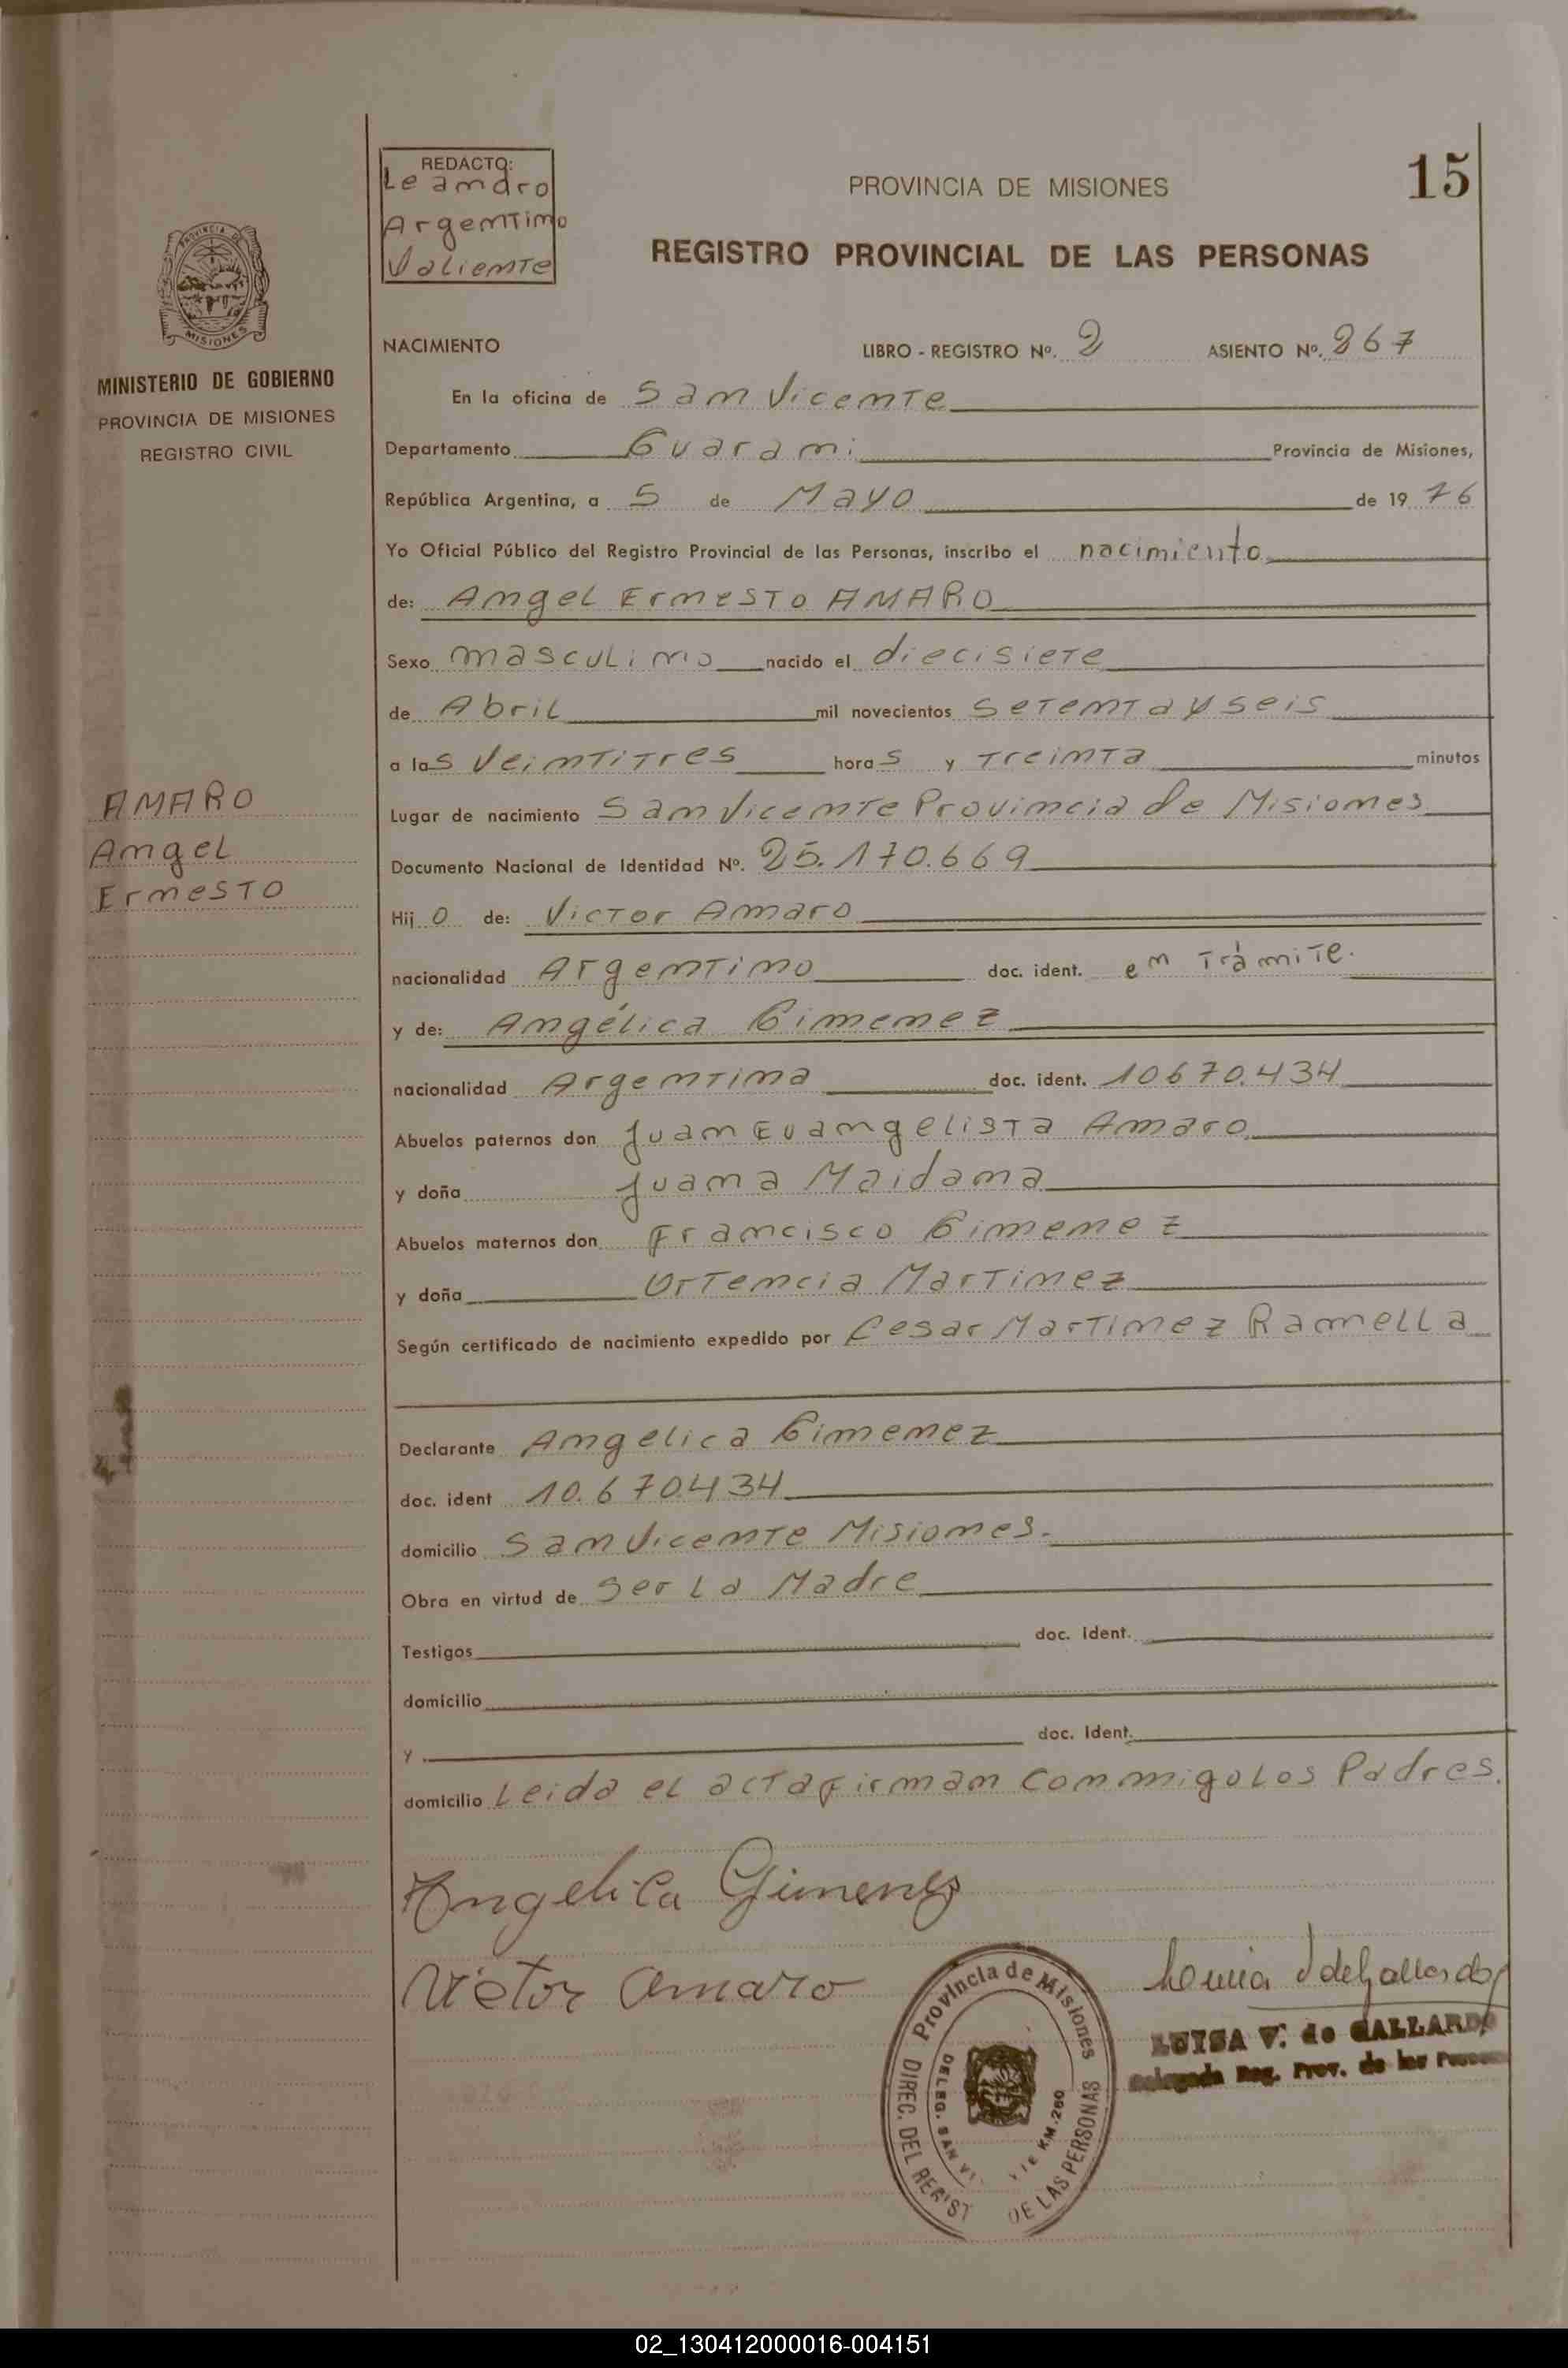 15
REDACTO:
Leandro
Argentino
Valiente
PROVINCIA DE MISIONES
REGISTRO PROVINCIAL DE LAS PERSONAS
PROVINCIA DE
MISIONES
MINISTERIO DE GOBIERNO
PROVINCIA DE MISIONES
REGISTRO CIVIL
AMARO
Angel
Ernesto
NACIMIENTO LIBRO - REGISTRO Nº. 2 ASIENTO Nº. 267
En la oficina de San Vicente
Departamento Guarani Provincia de Misiones,
República Argentina, a 5 de Mayo de 19 76
Yo Oficial Público del Registro Provincial de las Personas, inscribo el nacimiento
de: Angel Ernesto AMARO
Sexo masculino nacido el diecisiete
de Abril mil novecientos setenta y seis
a las veintitres horas y treinta minutos
Lugar de nacimiento San Vicente Provincia de Misiones
Documento Nacional de Identidad Nº. 25.170.669
Hijo de: Victor Amaro
nacionalidad Argentino doc. ident. en Tràmite.
y de: Angélica Gimenez
nacionalidad Argentina doc. ident. 10670.434
Abuelos paternos don Juan Evangelista Amaro
y doña Juana Maidana
Abuelos maternos don Francisco Gimenez
y doña Ortencia Martinez
Según certificado de nacimiento expedido por Cesar Martinez Ramella
Declarante Angelica Gimenez
doc. ident 10.670434
domicilio San Vicente Misiones.
Obra en virtud de Ser La Madre
Testigos doc. ident.
domicilio
y doc. ident.
domicilio Leida el acta firman conmigo Los Padres.
Angelica Gimenez
Victor Amaro
Provincia de Misiones
DIREC. DEL REGIST DE LAS PERSONAS
DELEG. SAN VI TE KM. 260
LUISA V. de GALLARDO
Delegada Reg. Prov. de las Personas
02_130412000016-004151